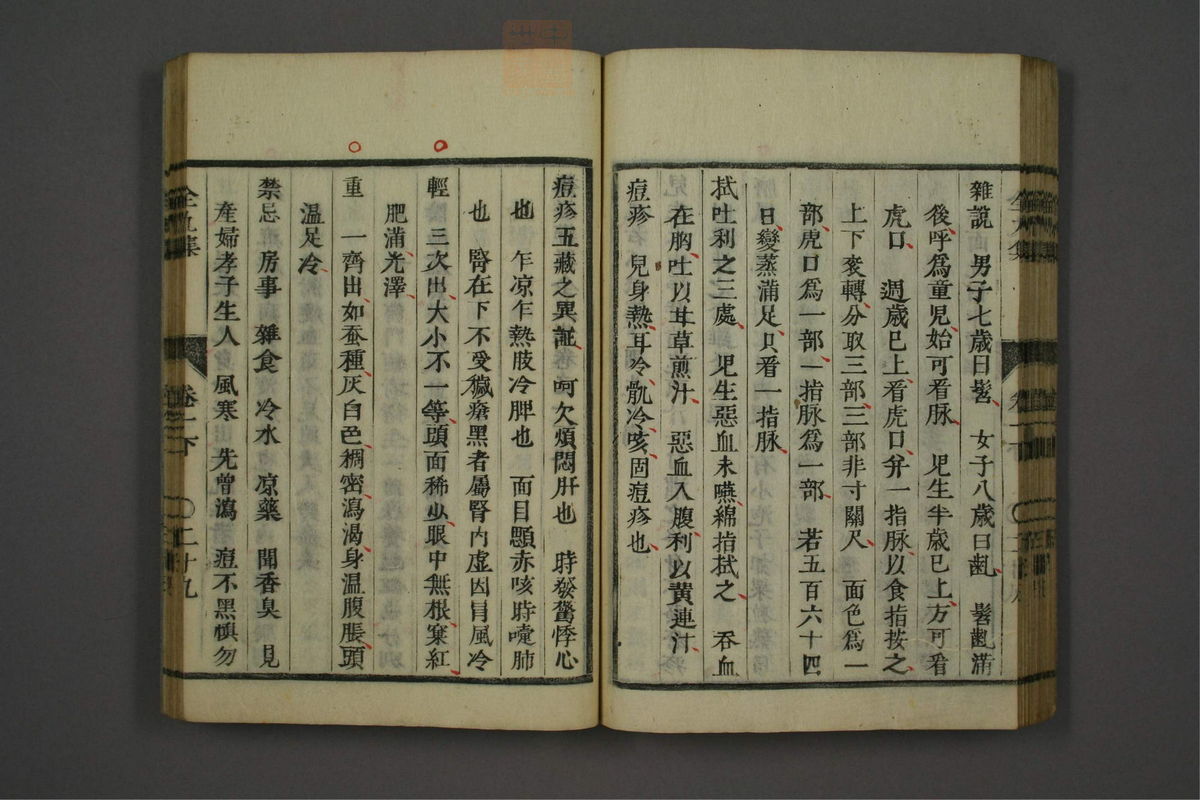 雜說 男子七歲曰髫 女子八歲曰齔 髫齔滿
後呼爲童兒始可看脉 児生半歲已上方可看
虎口 週歲已上看虎口弁一指脉以食指按之
上下衮轉分取三部三部非寸關尺 面色爲一
部虎口爲一部一指脉爲一部 若五百六十四
日變蒸滿足只看一指脉
拭吐利之三處 児生惡血未嚥綿指拭之 吞血
在胸吐以甘草煎汁 惡血入腹利以黄連汁
痘疹 兒身熱耳冷骩冷咳固痘疹也
痘疹五藏之異証 呵欠煩悶肝也 時發驚悸心
也 乍凉乍熱肢冷脾也 面目顋赤咳時嚏肺
也 腎在下不受穢瘡黑者屬腎内虚因冐風冷
輕 三次出大小不一等頭面稀少眼中無根窠紅
肥滿光澤
重 一齊出如蚕種灰白色稠密瀉渴身温腹脹頭
温足冷
禁忌 房事 雜食 冷水 凉藥 聞香臭 見
産婦孝子生人 風寒 先曾瀉 痘不黑慎勿
全九集 卷一下 〇二十九